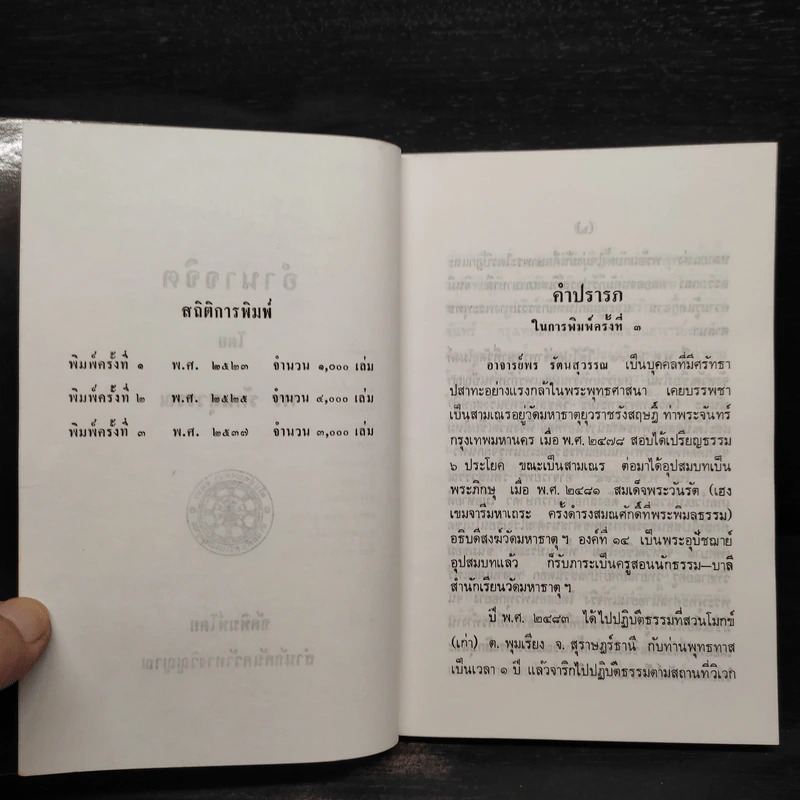 สถิติการพิมพ์
พิมพ์ครั้งที่ ๑ พ.ศ. ๒๕๒๓ จำนวน ๑,๐๐๐ เล่ม
พิมพ์ครั้งที่ ๒ พ.ศ. ๒๕๒๕ จำนวน ๔,๐๐๐ เล่ม
พิมพ์ครั้งที่ ๓ พ.ศ. ๒๕๓๗ จำนวน ๓,๐๐๐ เล่ม
คำปรารภ
ในการพิมพ์ครั้งที่ ๓
อาจารย์พร รัตนสุวรรณ เป็นบุคคลที่มีศรัทธา
ปสาทะอย่างแรงกล้าในพระพุทธศาสนา เคยบรรพชา
เป็นสามเณรอยู่วัดมหาธาตุยุวราชรังสฤษฎิ์ ท่าพระจันทร์
กรุงเทพมหานคร เมื่อ พ.ศ. ๒๔๗๘ สอบได้เปรียญธรรม
๖ ประโยค ขณะเป็นสามเณร ต่อมาได้อุปสมบทเป็น
พระภิกษุ เมื่อ พ.ศ. ๒๔๘๑ สมเด็จพระวันรัต (เฮง
เขมจารีมหาเถระ ครั้งดำรงสมณศักดิ์ที่พระพิมลธรรม)
อธิบดีสงฆ์วัดมหาธาตุฯ องค์ที่ ๑๔ เป็นพระอุปัชฌาย์
อุปสมบทแล้ว ก็รับภาระเป็นครูสอนนักธรรม—บาลี
สำนักเรียนวัดมหาธาตุฯ
ปี พ.ศ. ๒๔๘๓ ได้ไปปฏิบัติธรรมที่สวนโมกข์
(เก่า) ต. พุมเรียง จ. สุราษฎร์ธานี กับท่านพุทธทาส
เป็นเวลา ๑ ปี แล้วจาริกไปปฏิบัติธรรมตามสถานที่วิเวก